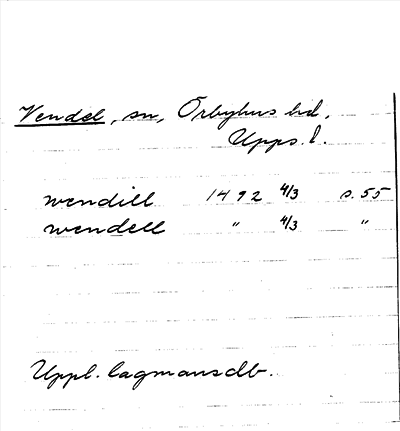 Vendel, sn, Örbyhus hd,
Upps. l.
wendill 1492 4/3 s. 55
wendell " 4/3 "
Uppl. lagmansdb.